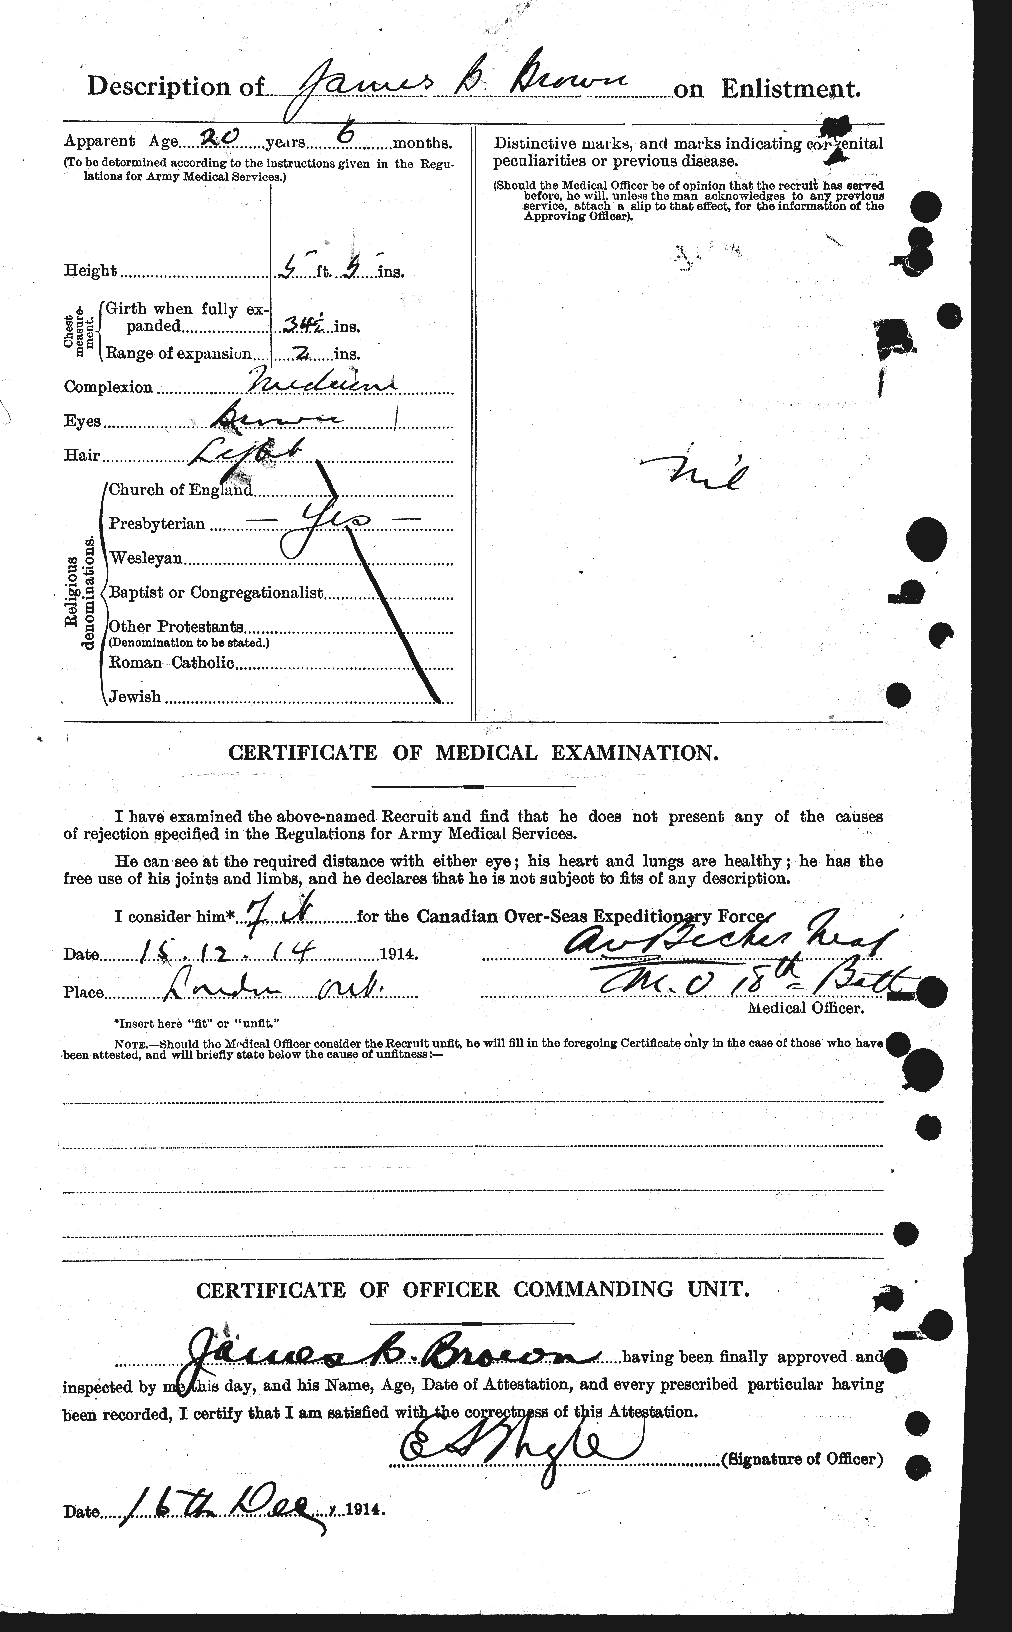 Description of James B. Brown on Enlistment.
Apparent Age 20 years 6 months.
(To be determined according to the instructions given in the Regu-
lations for Army Medical Services.)
Height 5 ft. 5 ins.
Chest measure-ment.
Girth when fully ex-
panded 34½ ins.
Range of expansion 2 ins.
Complexion Medium
Eyes Brown
Hair Light
Religious denominations.
Church of England
Presbyterian — Yes —
Wesleyan
Baptist or Congregationalist
Other Protestants
(Denomination to be stated.)
Roman Catholic
Jewish
Distinctive marks, and marks indicating congenital
peculiarities or previous disease.
(Should the Medical Officer be of opinion that the recruit has served
before, he will, unless the man acknowledges to any previous
service, attach a slip to that effect, for the information of the
Approving Officer).
Nil
CERTIFICATE OF MEDICAL EXAMINATION.
I have examined the above-named Recruit and find that he does not present any of the causes
of rejection specified in the Regulations for Army Medical Services.
He can see at the required distance with either eye; his heart and lungs are healthy; he has the
free use of his joints and limbs, and he declares that he is not subject to fits of any description.
I consider him* Fit for the Canadian Over-Seas Expeditionary Force.
Date 15.12.14 1914.
Place London Ont.
M.O 18th Batt
Medical Officer.
*Insert here "fit" or "unfit."
NOTE.—Should the Medical Officer consider the Recruit unfit, he will fill in the foregoing Certificate only in the case of those who have
been attested, and will briefly state below the cause of unfitness:—
CERTIFICATE OF OFFICER COMMANDING UNIT.
James B. Brown having been finally approved and
inspected by me this day, and his Name, Age, Date of Attestation, and every prescribed particular having
been recorded, I certify that I am satisfied with the correctness of this Attestation.
(Signature of Officer)
Date 16th Dec 1914.